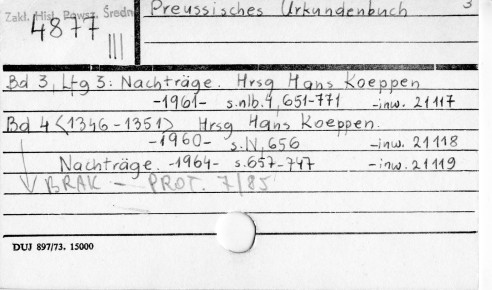 Preussisches Urkundenbuch 3
Zakl. Hist. Powsz. Średn
4877
III
Bd 3, Lfg 3: Nachträge. Hrsg Hans Koeppen
-1961- s.nlb.4, 651-771 -inw. 21117
Bd 4 <1346-1351> Hrsg Hans Koeppen.
-1960- s.IV, 656 -inw. 21118
Nachträge. -1964- s.657-747 -inw. 21119
BRAK - PROT. 7/85
DUJ 897/73. 15000